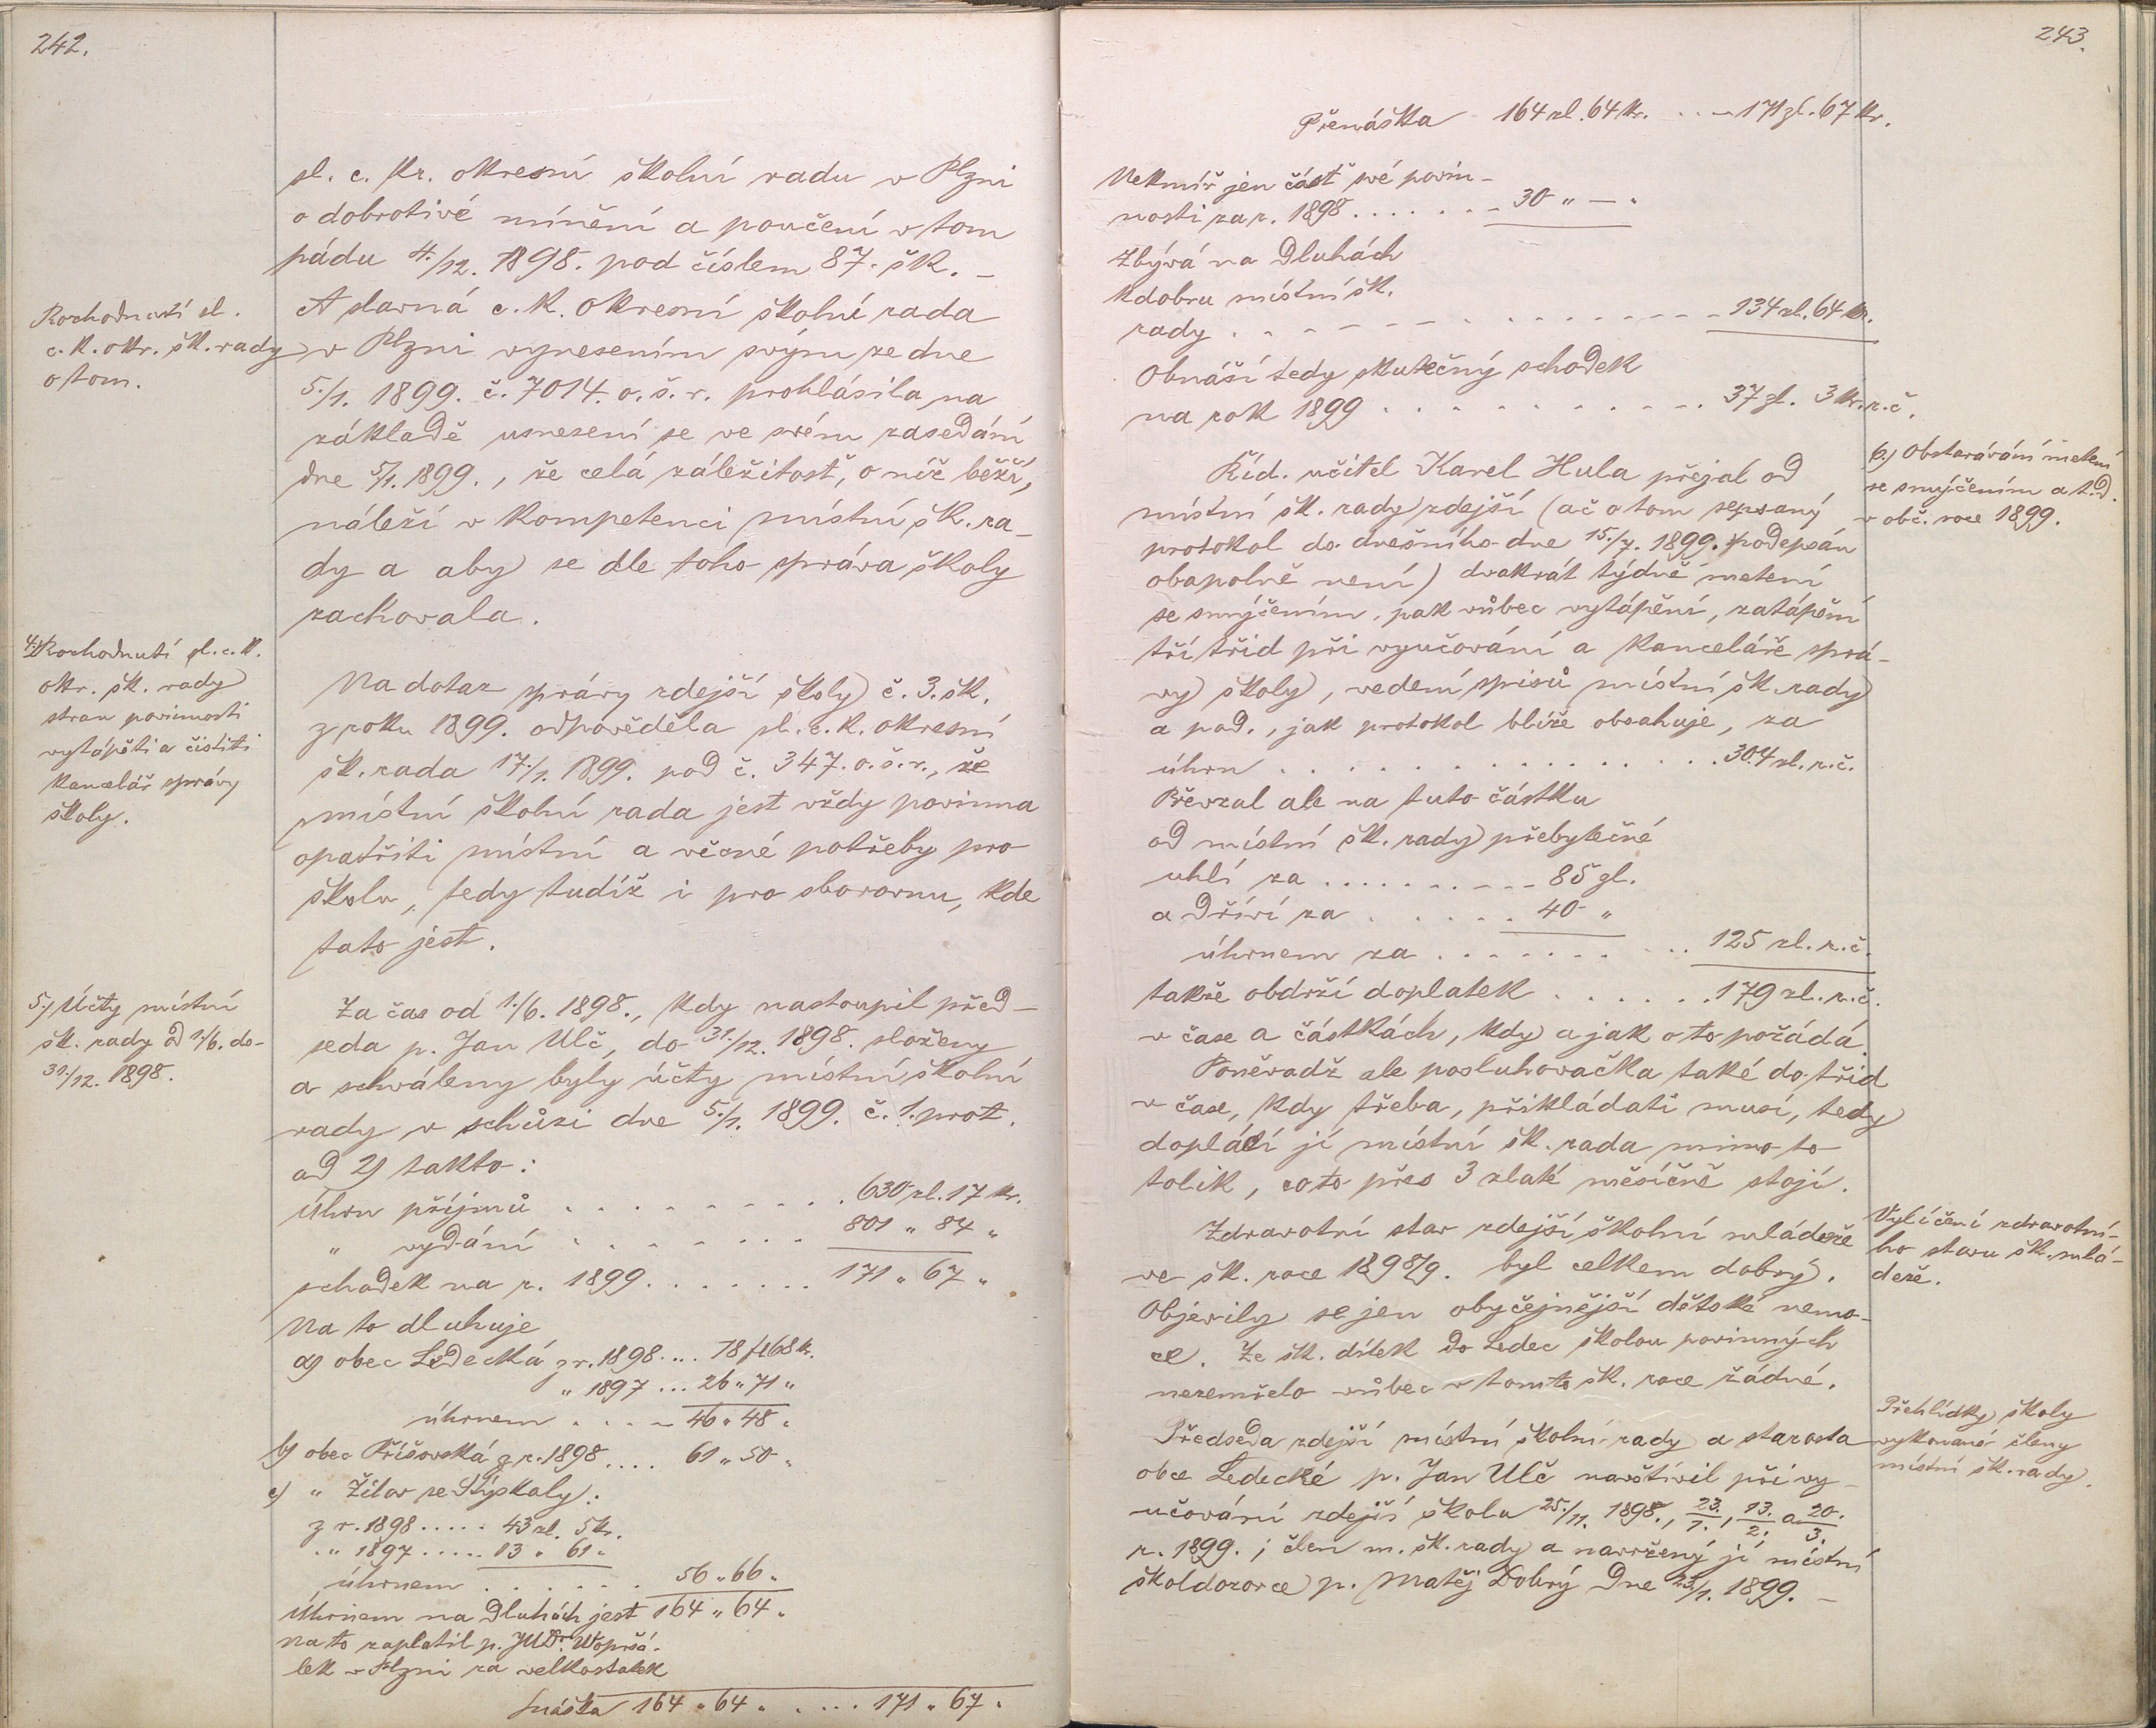 242.
sl. c. kr. okresní školní radu v Plzni
o dobrotivé mínění a poučení v tom
pádu 4./12. 1898. pod číslem 87. šk. –
Rozhodnutí sl.
c. k. okr. šk. rady
o tom.
A slavná c. k. okresní školní rada
v Plzni vynesením svým ze dne
5./1. 1899. č. 7014. o. š. r. prohlásila na
základě usnesení se ve svém zasedání
dne 5/1. 1899., že celá záležitosť, o níž běží,
náleží v kompetenci místní šk. ra-
dy a aby se dle toho správa školy
zachovala.
4.) Rozhodnutí sl. c. k.
okr. šk. rady
stran povinnosti
vytápěti a čistiti
kancelář správy
školy.
Na dotaz správy zdejší školy č. 3. šk.
z roku 1899. odpověděla sl. c. k. okresní
šk. rada 17./1. 1899. pod č. 347. o. š. r., že
místní školní rada jest vždy povinna
opatřiti místní a věcné potřeby pro
školu, tedy tudíž i pro sborovnu, kde
tato jest.
5.) Účty místní
šk. rady od 1./6. do
31./12. 1898.
Za čas od 1./6. 1898., kdy nastoupil před-
seda p. Jan Ulč, do 31./12. 1898. složeny
a schváleny byly účty místní školní
rady v schůzi dne 5./1. 1899. č. 1. prot.
ad 2) takto:
Úhrn příjmů . . . . . . . . . 630 zl. 17 kr.
" vydání . . . . . . . 801 " 84 "
schodek na r. 1899. . . . . . . 171 " 67 "
Na to dluhuje
a) obec Ledecká z r. 1898. . . . 78 fl 68 k.
" 1897 . . . 26 " 71 "
úhrnem . . . . 46 " 48 "
b) obec Příšovská z r. 1898 . . . . 61 " 50 "
c) " Žilov se Stýskaly:
z r. 1898 . . . . . 43 zl. 5 kr.
" 1897 . . . . . 13 " 61 "
úhrnem . . . . . . 56 " 66 "
Úhrnem na dluhách jest 164 " 64 "
Na to zaplatil p. JUDr.
lek v Plzni za velkostatek
Snáška 164 " 64 " . . . . 171 " 67 "
243.
Přenáška 164 zl. 64 kr. . . . 171 zl. 67 kr.
Nekmíř jen část své povin-
nosti za r. 1898 . . . . . . . 30 " — "
Zbývá na dluhách
k dobru místní šk.
rady . . . . . . . . . . . . . . . 134 zl. 64 kr.
Obnáší tedy skutečný schodek
na rok 1899 . . . . . . . . . . . 37 zl. 3 kr. r. č.
6.) Obstarávání metení
se smýčením a t. d.
v obč. roce 1899.
Říd. učitel Karel Hula přejal od
místní šk. rady zdejší (ač o tom sepsaný
protokol do dnešního dne 15./7. 1899. podepsán
obapolně není) dvakrát týdně metení
se smýčením, pak vůbec vytápění, zatápění
tří tříd při vyučování a kanceláře sprá-
vy školy, vedení spisů místní šk. rady
a pod., jak protokol blíže obsahuje, za
úhrn . . . . . . . . . . . . . . . . 304 zl. r. č.
Převzal ale na tuto částku
od místní šk. rady přebytečné
uhlí za . . . . . . . . . . 85 zl.
a dříví za . . . . . . 40 "
úhrnem za . . . . . . . . . . 125 zl. r. č.
takže obdrží doplatek . . . . . . . 179 zl. r. č.
v čase a částkách, kdy a jak o to požádá.
Poněvadž ale posluhovačka také do tříd
v čase, kdy třeba, přikládati musí, tedy
doplácí jí místní šk. rada mimo to
tolik, co to přes 3 zlaté měsíčně stojí.
Vylíčení zdravotní-
ho stavu šk. mlá-
deže.
Zdravotní stav zdejší školní mládeže
ve šk. roce 1898/9. byl celkem dobrý.
Objevily se jen obyčejnější dětské nemo-
ce. Ze šk. dítek do Ledec školou povinných
nezemřelo vůbec v tomto šk. roce žádné.
Přehlídky školy
vykonané členy
místní šk. rady.
Předseda zdejší místní školní rady a starosta
obce Ledecké p. Jan Ulč navštívil při vy-
učování zdejší školu 25./11. 1898., 23./1., 13./2. a 20./3.
r. 1899.; člen m. šk. rady a navržený jí místní
školdozorce p. Matěj Dobrý dne 23./1. 1899. –